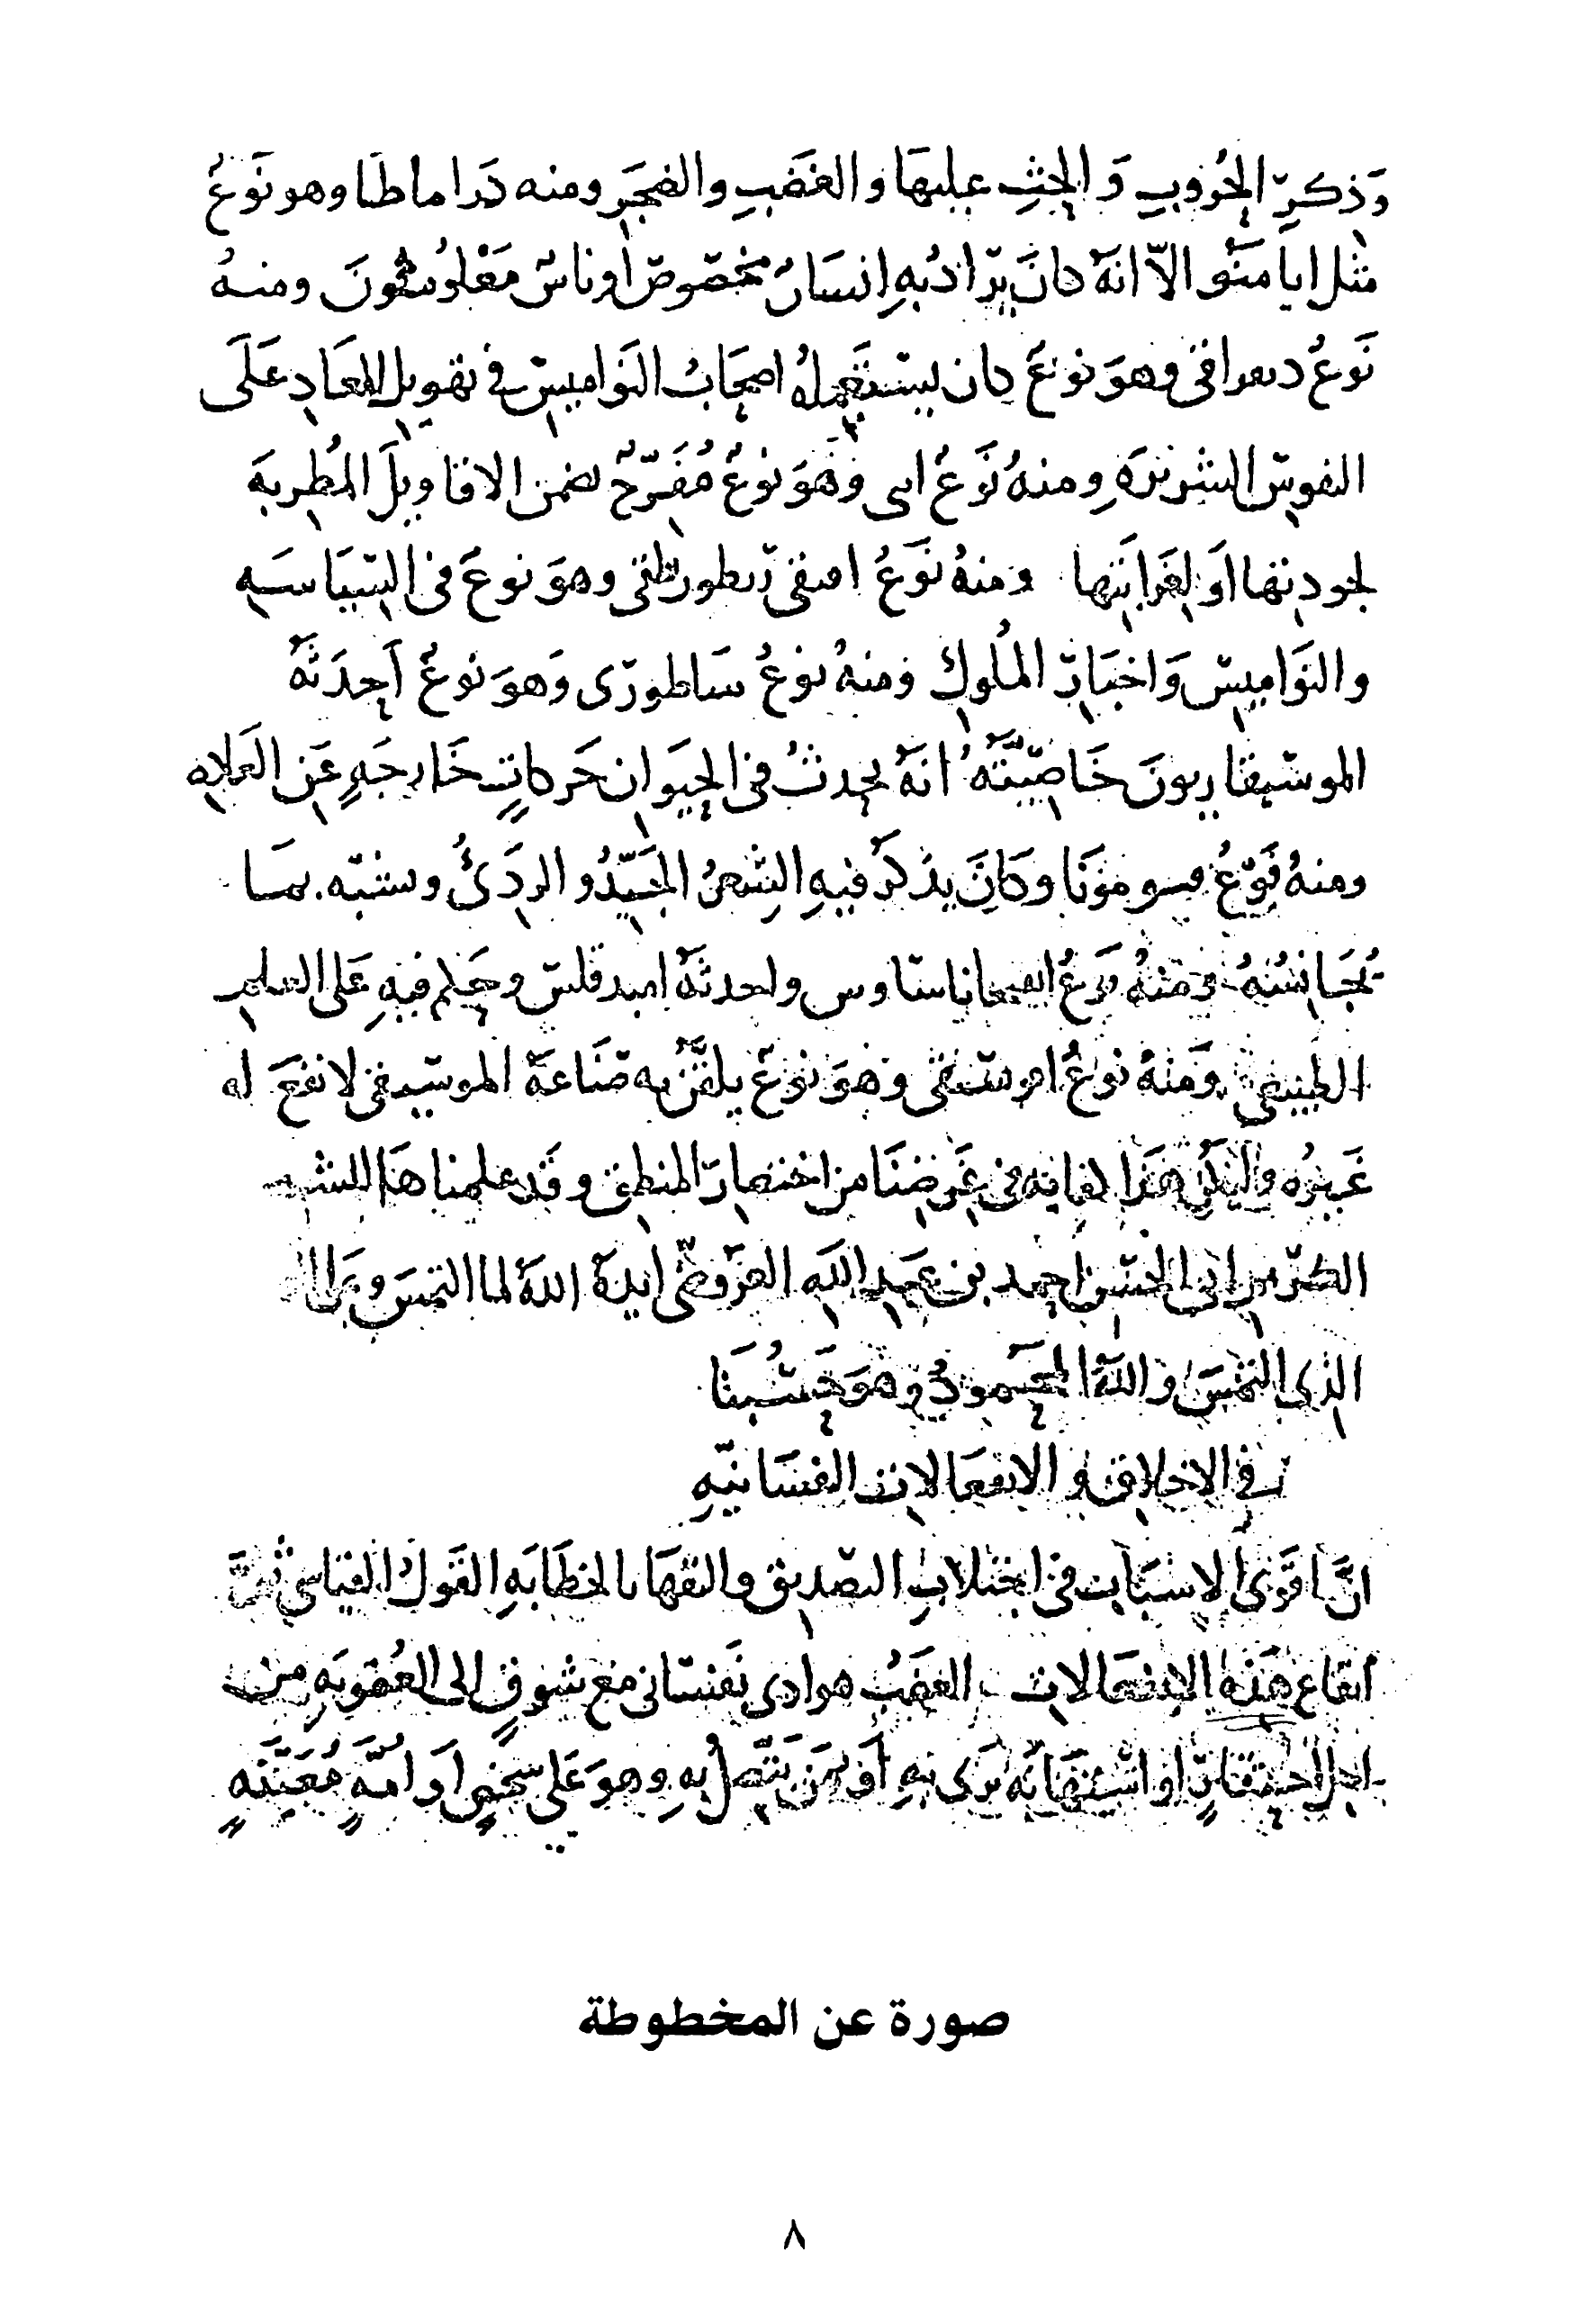 وَذكرِ الحُروبِ وَالحثِ عليهَا والغضَبِ والضجَرِ ومنه دَراماطا وهو نَوعٌ
مثل ايامنَو الاّ انهُ كانَ يرادُ بهِ انسانٌ مخصوصٌ او ناسٌ مَعْلومُونَ ومنهُ
نَوعُ دىعرافى وهوَ نوعٌ كان يستَعملهُ اصحَابُ النَواميس فى تهويل المعَادِ عَلَى
النفوس الشريرَهِ ومنهُ نَوعُ اىى وهوَ نوعٌ مُفَرّحٌ ىضمن الاقاويلَ المُطربهَ
لجودتها اَو لغَرابَتها ومنهُ نَوعُ افىقى رىطورىقى وهوَ نوعٌ فى السّيَاسَهِ
والنَواميس وَاخبَارِ المُلوكِ ومنهُ نوعُ ساطورى وَهوَ نوعٌ اَحدَثهُ
الموسيقاريونَ خَاصّيّتُهُ انهُ يحدثُ فى الحيَوان حَركاتٍ خَارجَهٍ عَن العَاده
ومنهُ نوعُ فىومونَا وكانَ يذكرُ فيهِ الشِعرُ الجَيّدُ والردَىُ وىشبّه ىمَا
يُجَانسُهُ ومنهُ نوعُ اىىجاناساوس واحدثهُ امبدقلس وحكم فيهِ عَلى العلم
الطبيعى ومنهُ نوعُ اىوستىقى وهوَ نوعٌ يلقّنُ به صنَاعَهُ الموسيقى لا نفعَ له
غَيرُه وليكن هَذا كفايه فى غَرضنَا من اختصار المنطق وقد علمناهَا للشيخ
الكريم ابى الحسَن احمد بن عبد اللهِ العروضىّ ايدهُ اللهُ لما التمسَ وعَلى
الذى التمسَ واللهُ المحمودُ وهوَ حَسْبنَا
فى الاخلاق والانفعَالات النفسَانيّهِ
انَّ اقوَى الاسبَابِ فى اجتلابِ التصديق والتقهَا بالخطَابَهِ القَولُ القياسىّ ثمَّ
ايقاع هَذه الانفعَالات الغضبُ هو اذى نفسَانى معَ شوقٍ الى العُقوبَهِ من
اجل احتقارٍ او استهَانه يرَى بهِ اَو بمَن يَتّصلُ بهِ وهوَ عَلى شخصٍ اَو اُمّهٍ مُعَيّنَهٍ
صورة عن المخطوطة
٨